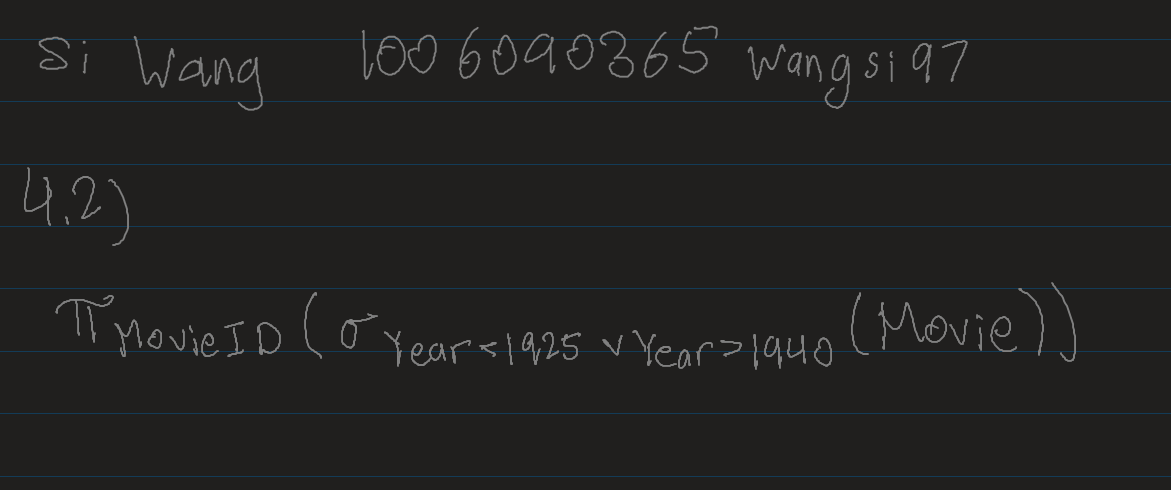 Si Wang 1006090365 wangsi97
4.2)
π MovieID (σ Year<1925 ∨ Year>1940 (Movie))